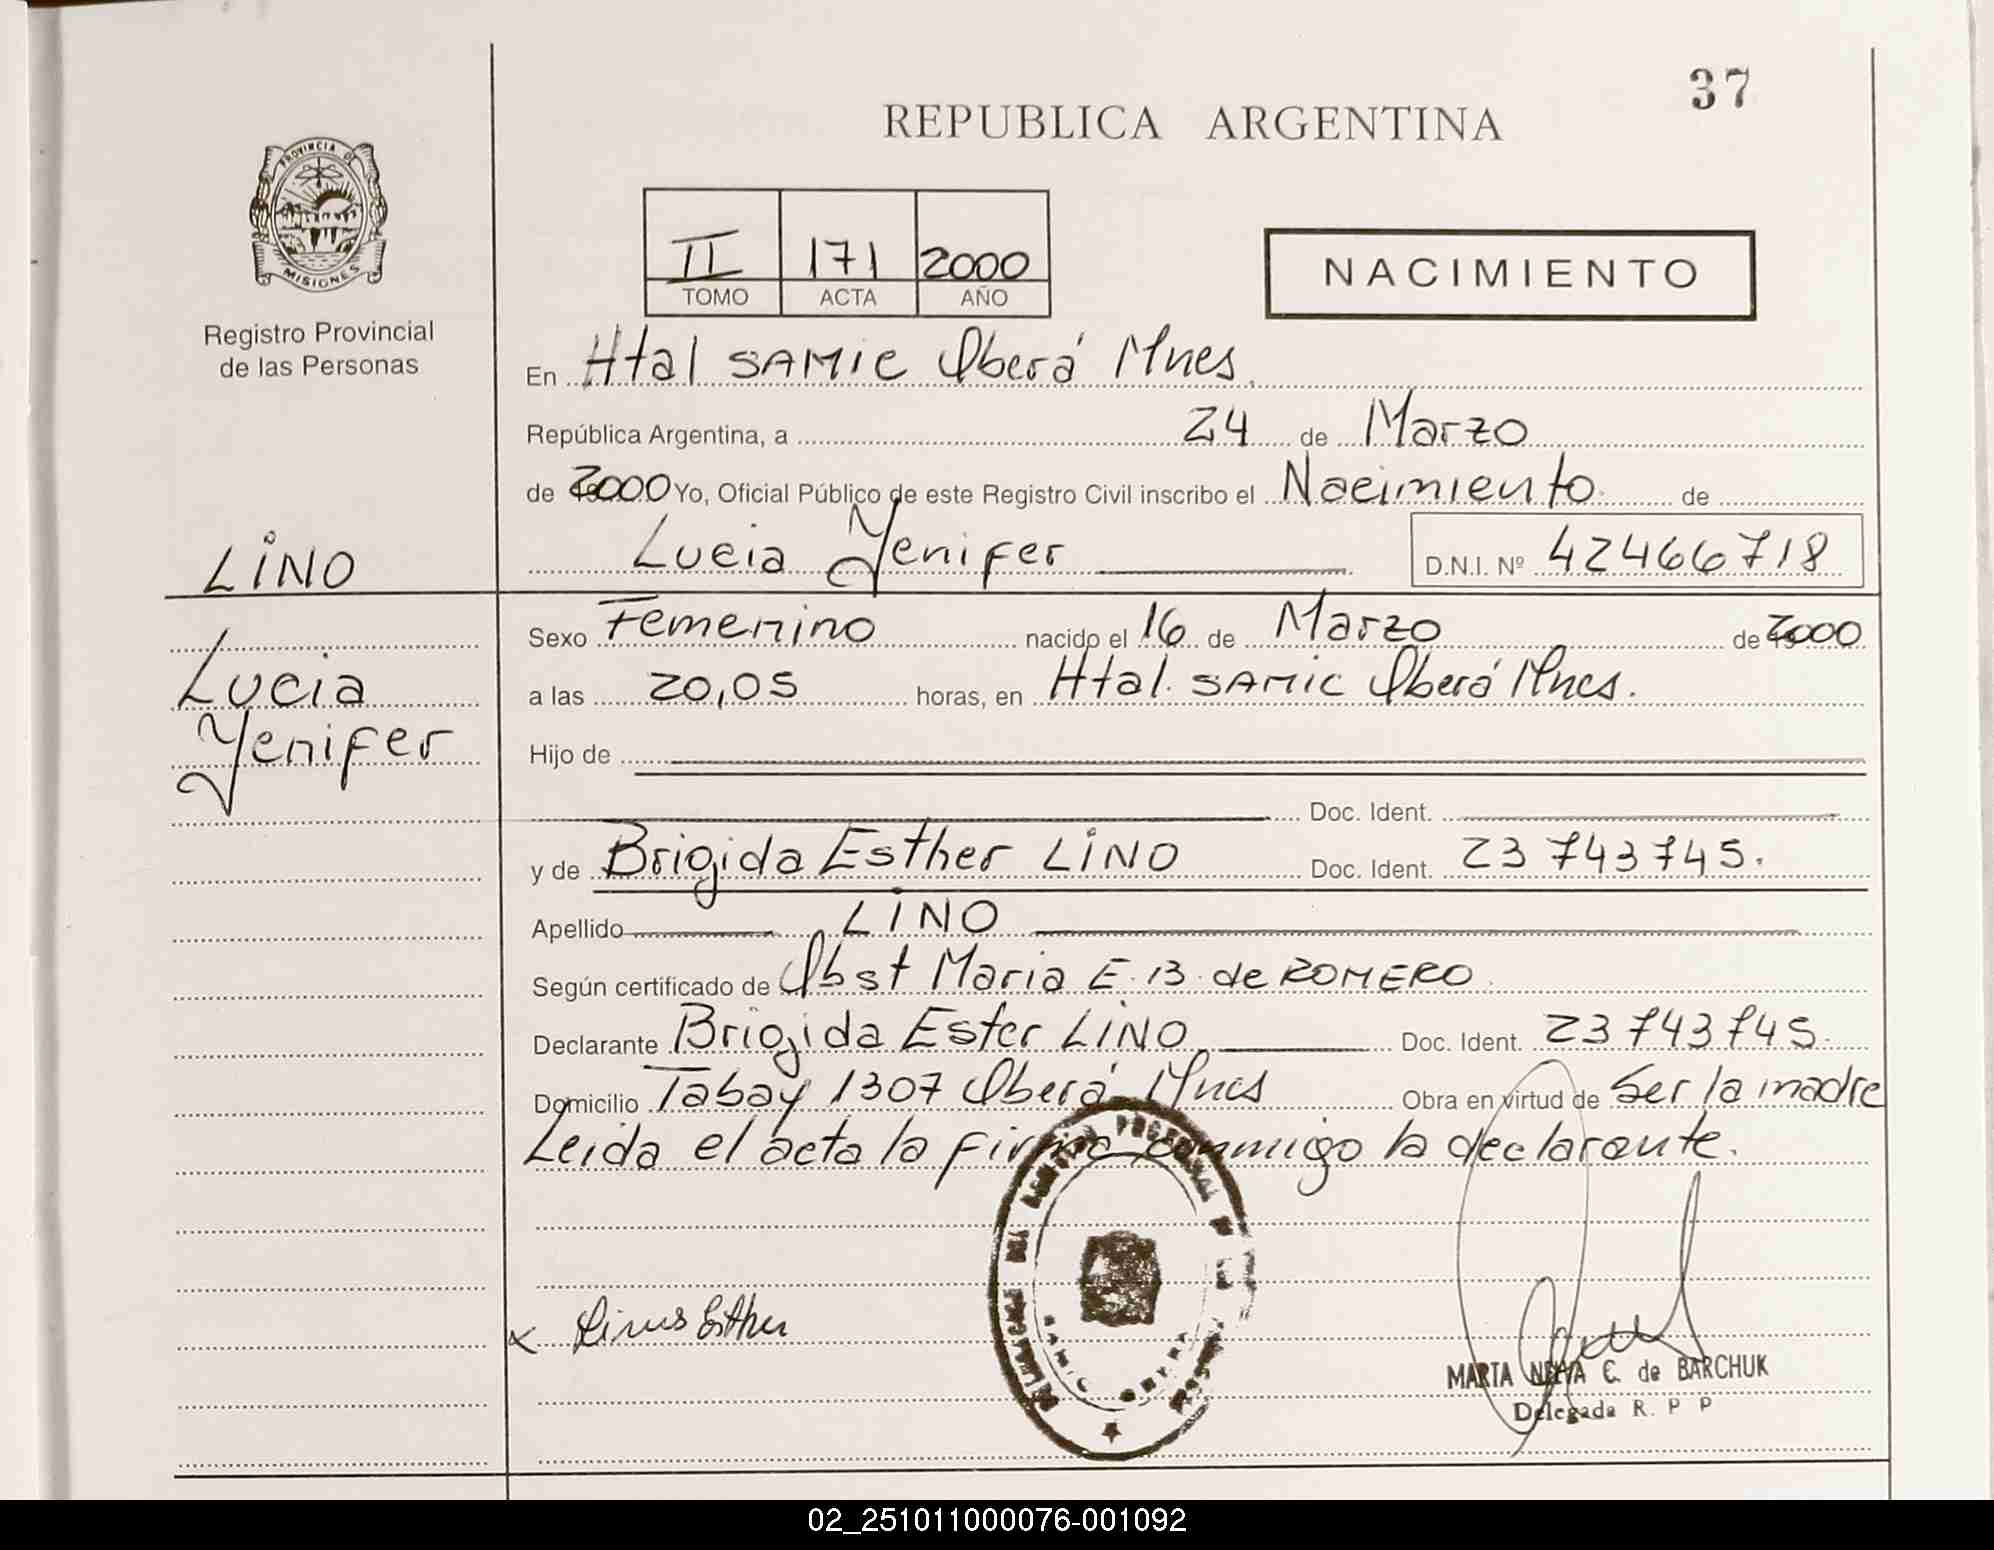 37
REPUBLICA ARGENTINA
PROVINCIA DE
MISIONES
Registro Provincial
de las Personas
II 171 2000
TOMO ACTA AÑO
NACIMIENTO
En Htal SAMIC Oberá Mnes.
República Argentina, a 24 de Marzo
de 2000 Yo, Oficial Público de este Registro Civil inscribo el Nacimiento de
Lucia Yenifer D.N.I. Nº 42466718
LiNO
Lucia
Yenifer
Sexo Femenino nacido el 16 de Marzo de 2000
a las 20,05 horas, en Htal. SAMIC Oberá Mnes.
Hijo de
Doc. Ident.
y de Brigida Esther LiNO Doc. Ident. 23743745.
Apellido LiNO
Según certificado de Obst Maria E. B. de ROMERO
Declarante Brigida Ester LiNO Doc. Ident. 23743745.
Domicilio Tabay 1307 Oberá Mnes Obra en virtud de Ser la madre
Leida el acta la firma conmigo la declarante.
Esther
SAMIC OBERA
MARTA C. de BARCHUK
Delegada R. P P
02_251011000076-001092